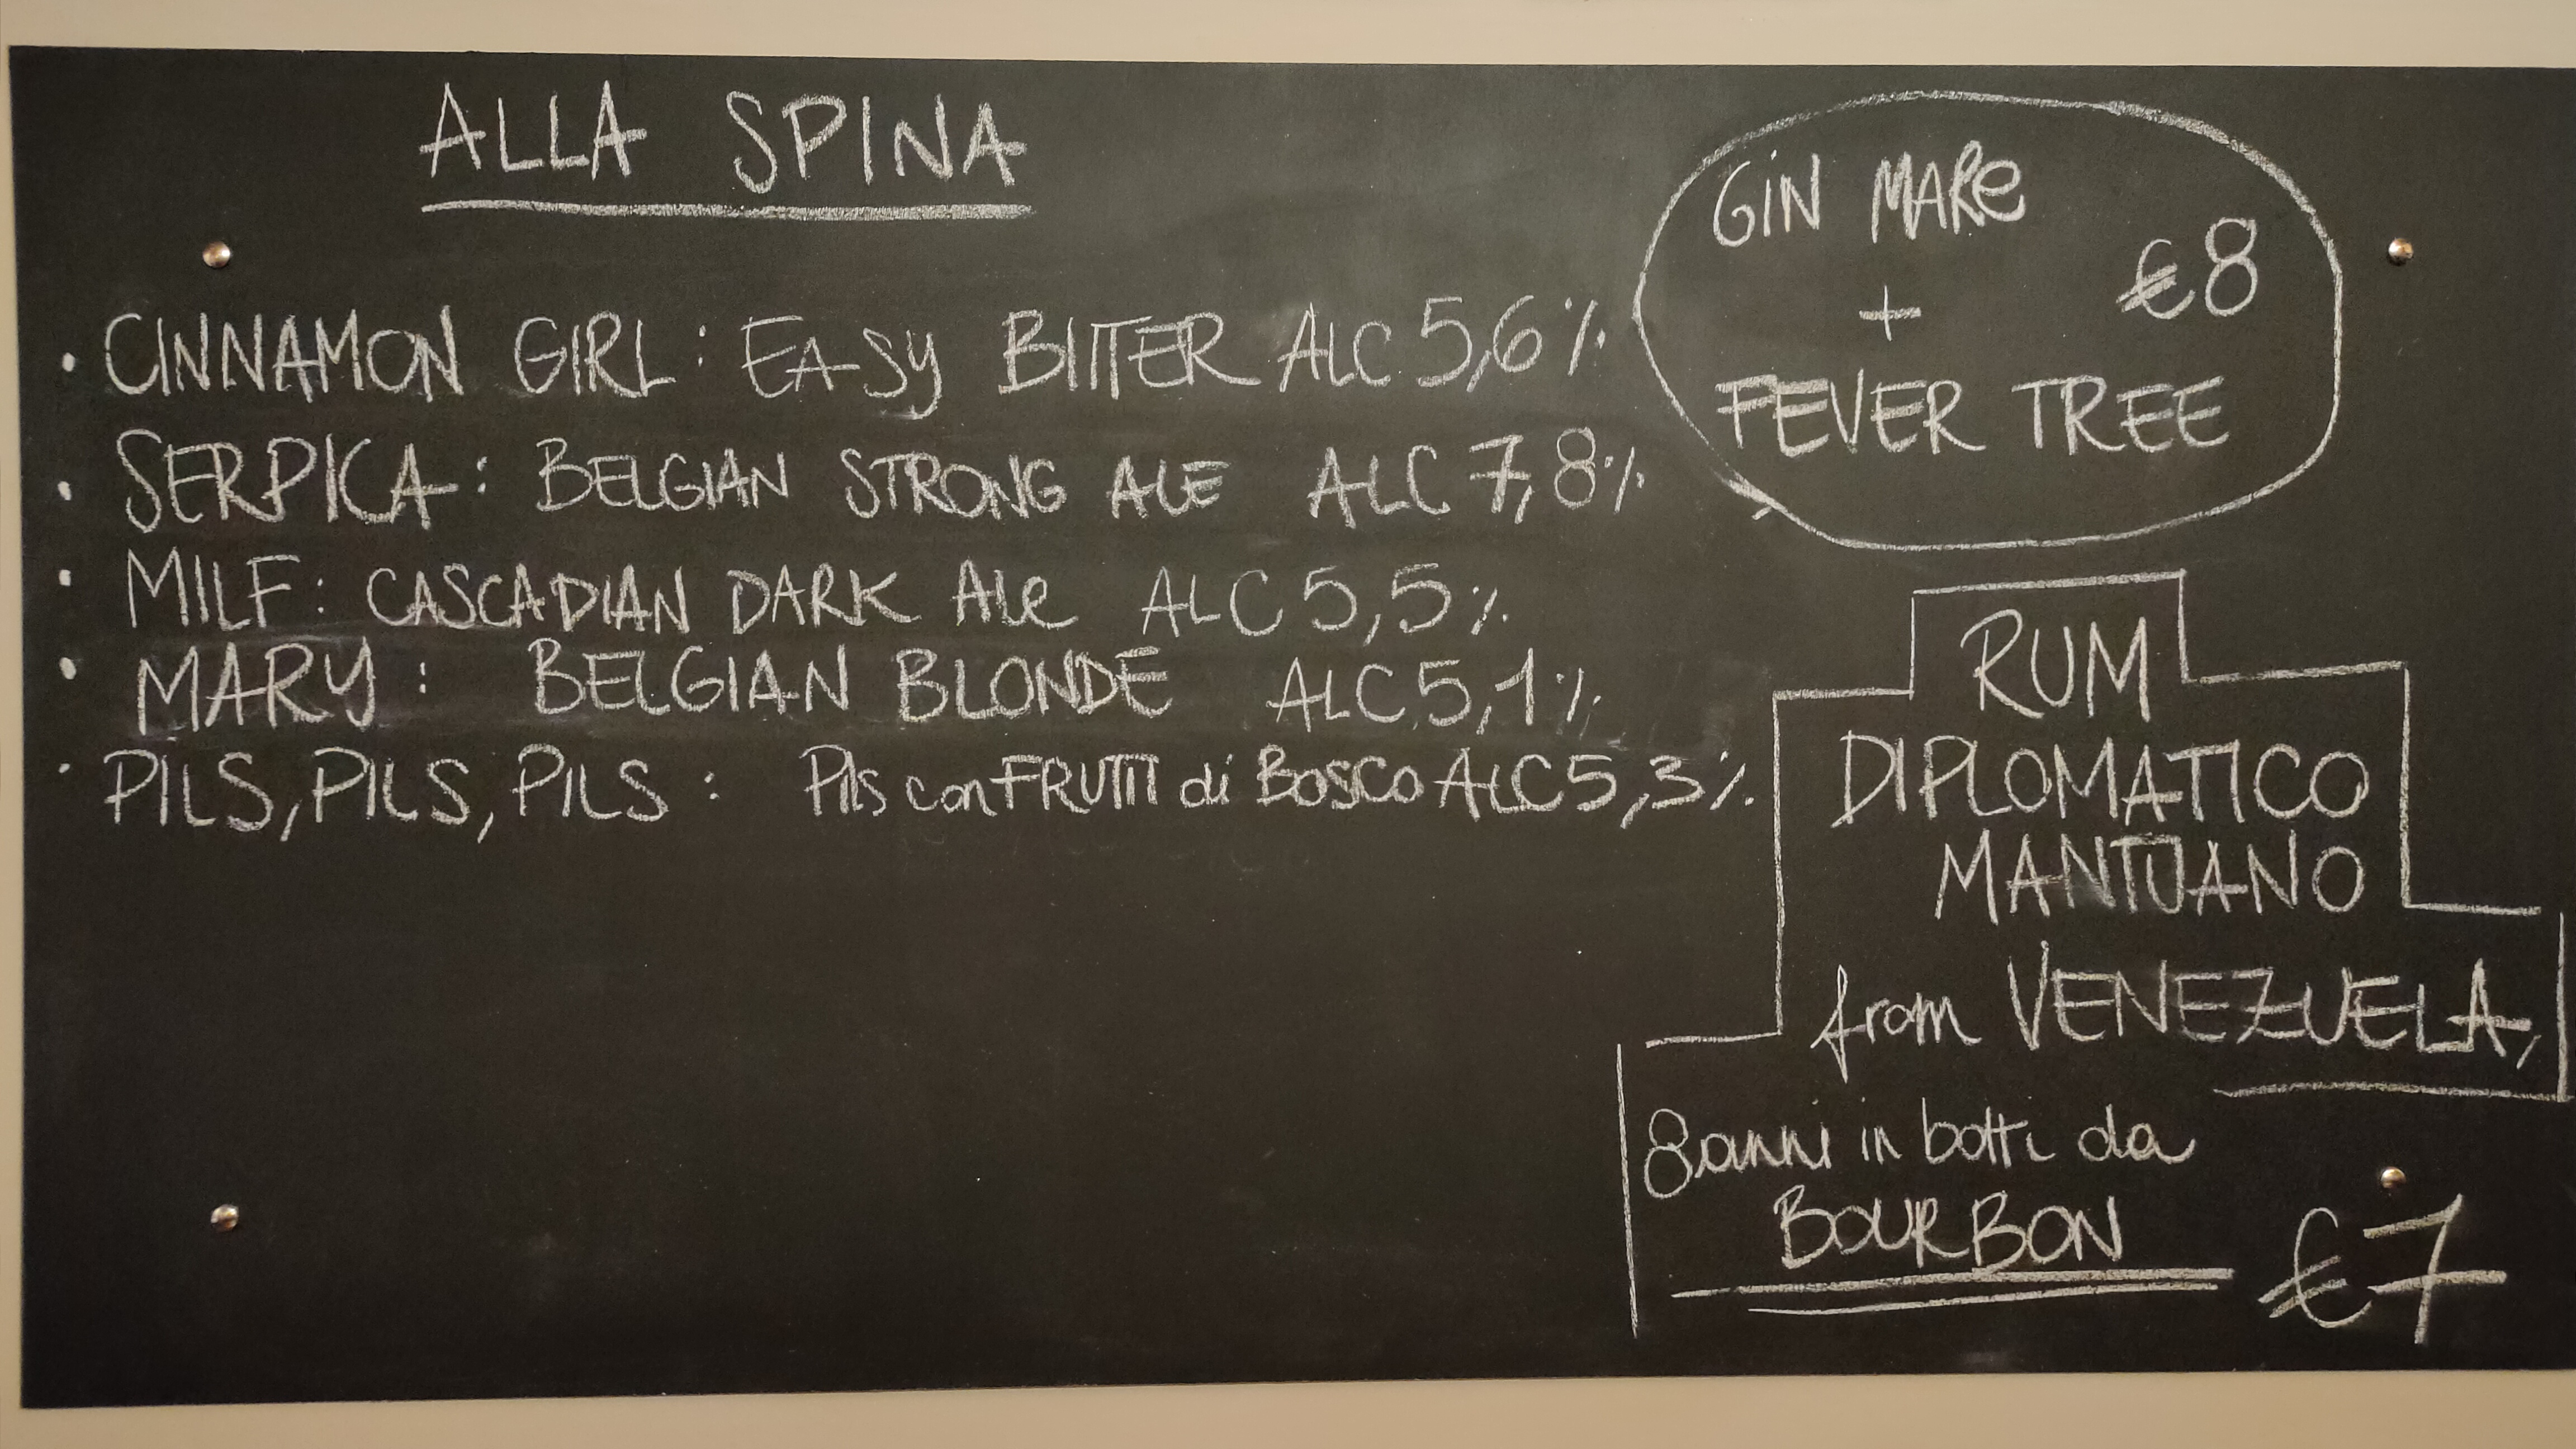 ALLA SPINA
• CINNAMON GIRL: EASY BITTER ALC 5,6%
• SERPICA: BELGIAN STRONG ALE ALC 7,8%
• MILF: CASCADIAN DARK Ale ALC 5,5%
• MARY: BELGIAN BLONDE ALC 5,1%
• PILS, PILS, PILS: Pils con FRUTTI di Bosco ALC 5,3%
GIN MARe
+
€8
FEVER TREE
RUM
DIPLOMATICO
MANTUANO
from VENEZUELA,
8 anni in botti da
BOURBON
€7